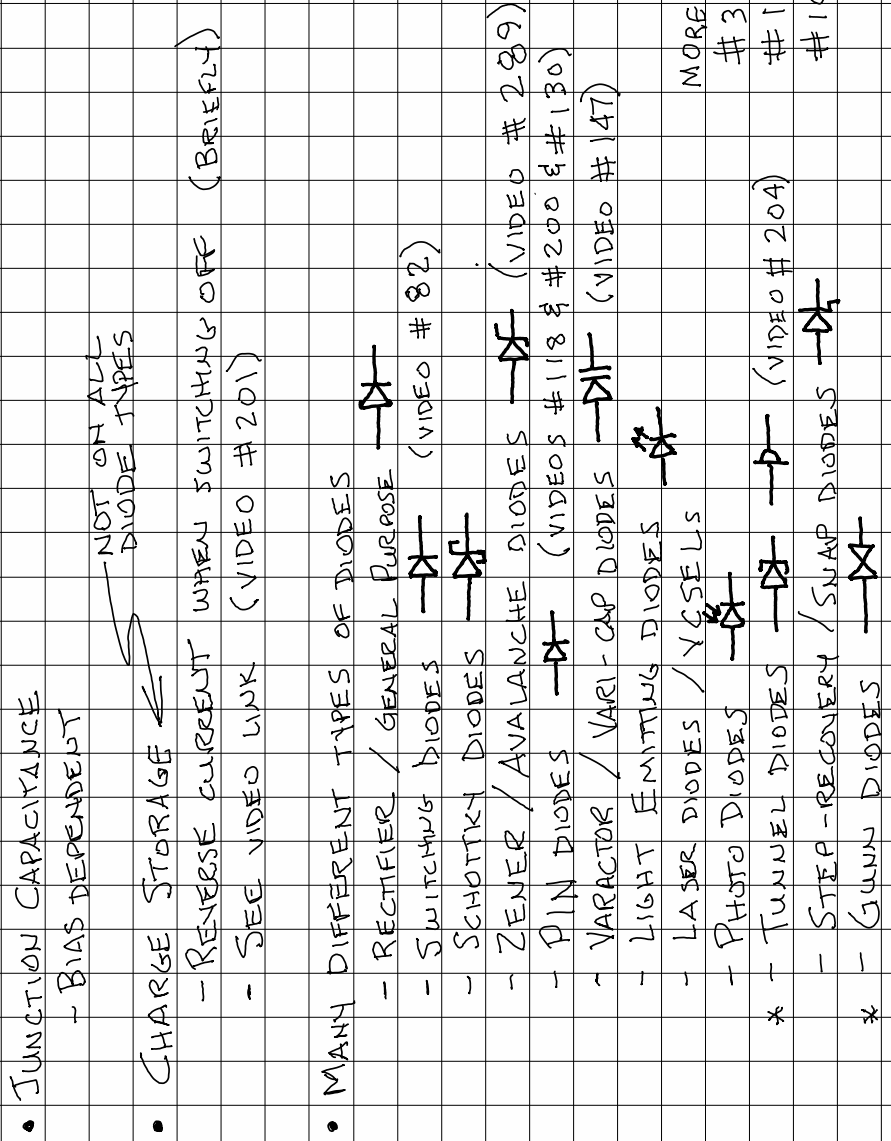 • JUNCTION CAPACITANCE
- BIAS DEPENDENT
NOT ON ALL
DIODE TYPES
• CHARGE STORAGE
- REVERSE CURRENT WHEN SWITCHING OFF (BRIEFLY)
- SEE VIDEO LINK (VIDEO #201)
• MANY DIFFERENT TYPES OF DIODES
- RECTIFIER / GENERAL PURPOSE
- SWITCHING DIODES (VIDEO #82)
- SCHOTTKY DIODES
- ZENER / AVALANCHE DIODES (VIDEO #289)
- PIN DIODES (VIDEOS #118 & #200 & #130)
- VARACTOR / VARI-CAP DIODES (VIDEO #147)
- LIGHT EMITTING DIODES
- LASER DIODES / VCSELS
MORE
- PHOTO DIODES
#3
* - TUNNEL DIODES (VIDEO #204)
#1
- STEP-RECOVERY / SNAP DIODES
* - GUNN DIODES